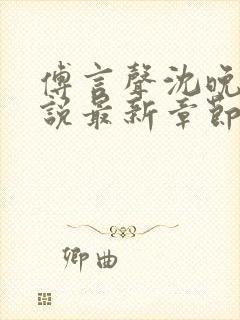 傅言聲沈晚
說最新章節
卿曲